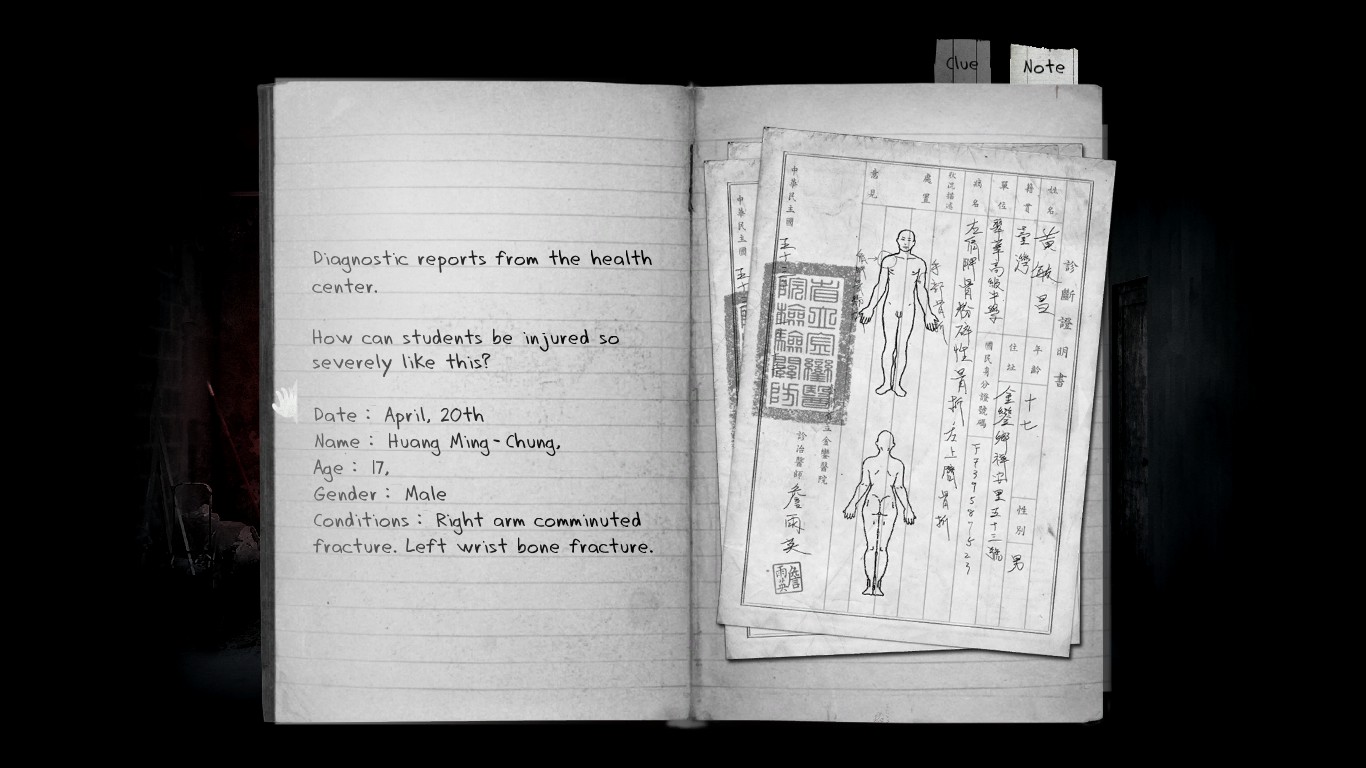 Clue
Note
Diagnostic reports from the health
center.
How can students be injured so
severely like this?
Date : April, 20th
Name : Huang Ming-Chung,
Age : 17,
Gender : Male
Conditions : Right arm comminuted
fracture. Left wrist bone fracture.
診斷證明書
姓名 黃敏昌 年齡 十七
籍貫 臺灣 住址 金鑾鄉祥安里五十三號 性別 男
單位 翠華高級中學 國民身分證號碼
病名 左肩胛骨粉碎性骨折,左上臂骨折
狀況描述
處置
意見
省立金鑾醫院檢驗關防
金鑾醫院
診治醫師 詹雨英
詹雨英
中華民主國 五十
中華民主國 五十